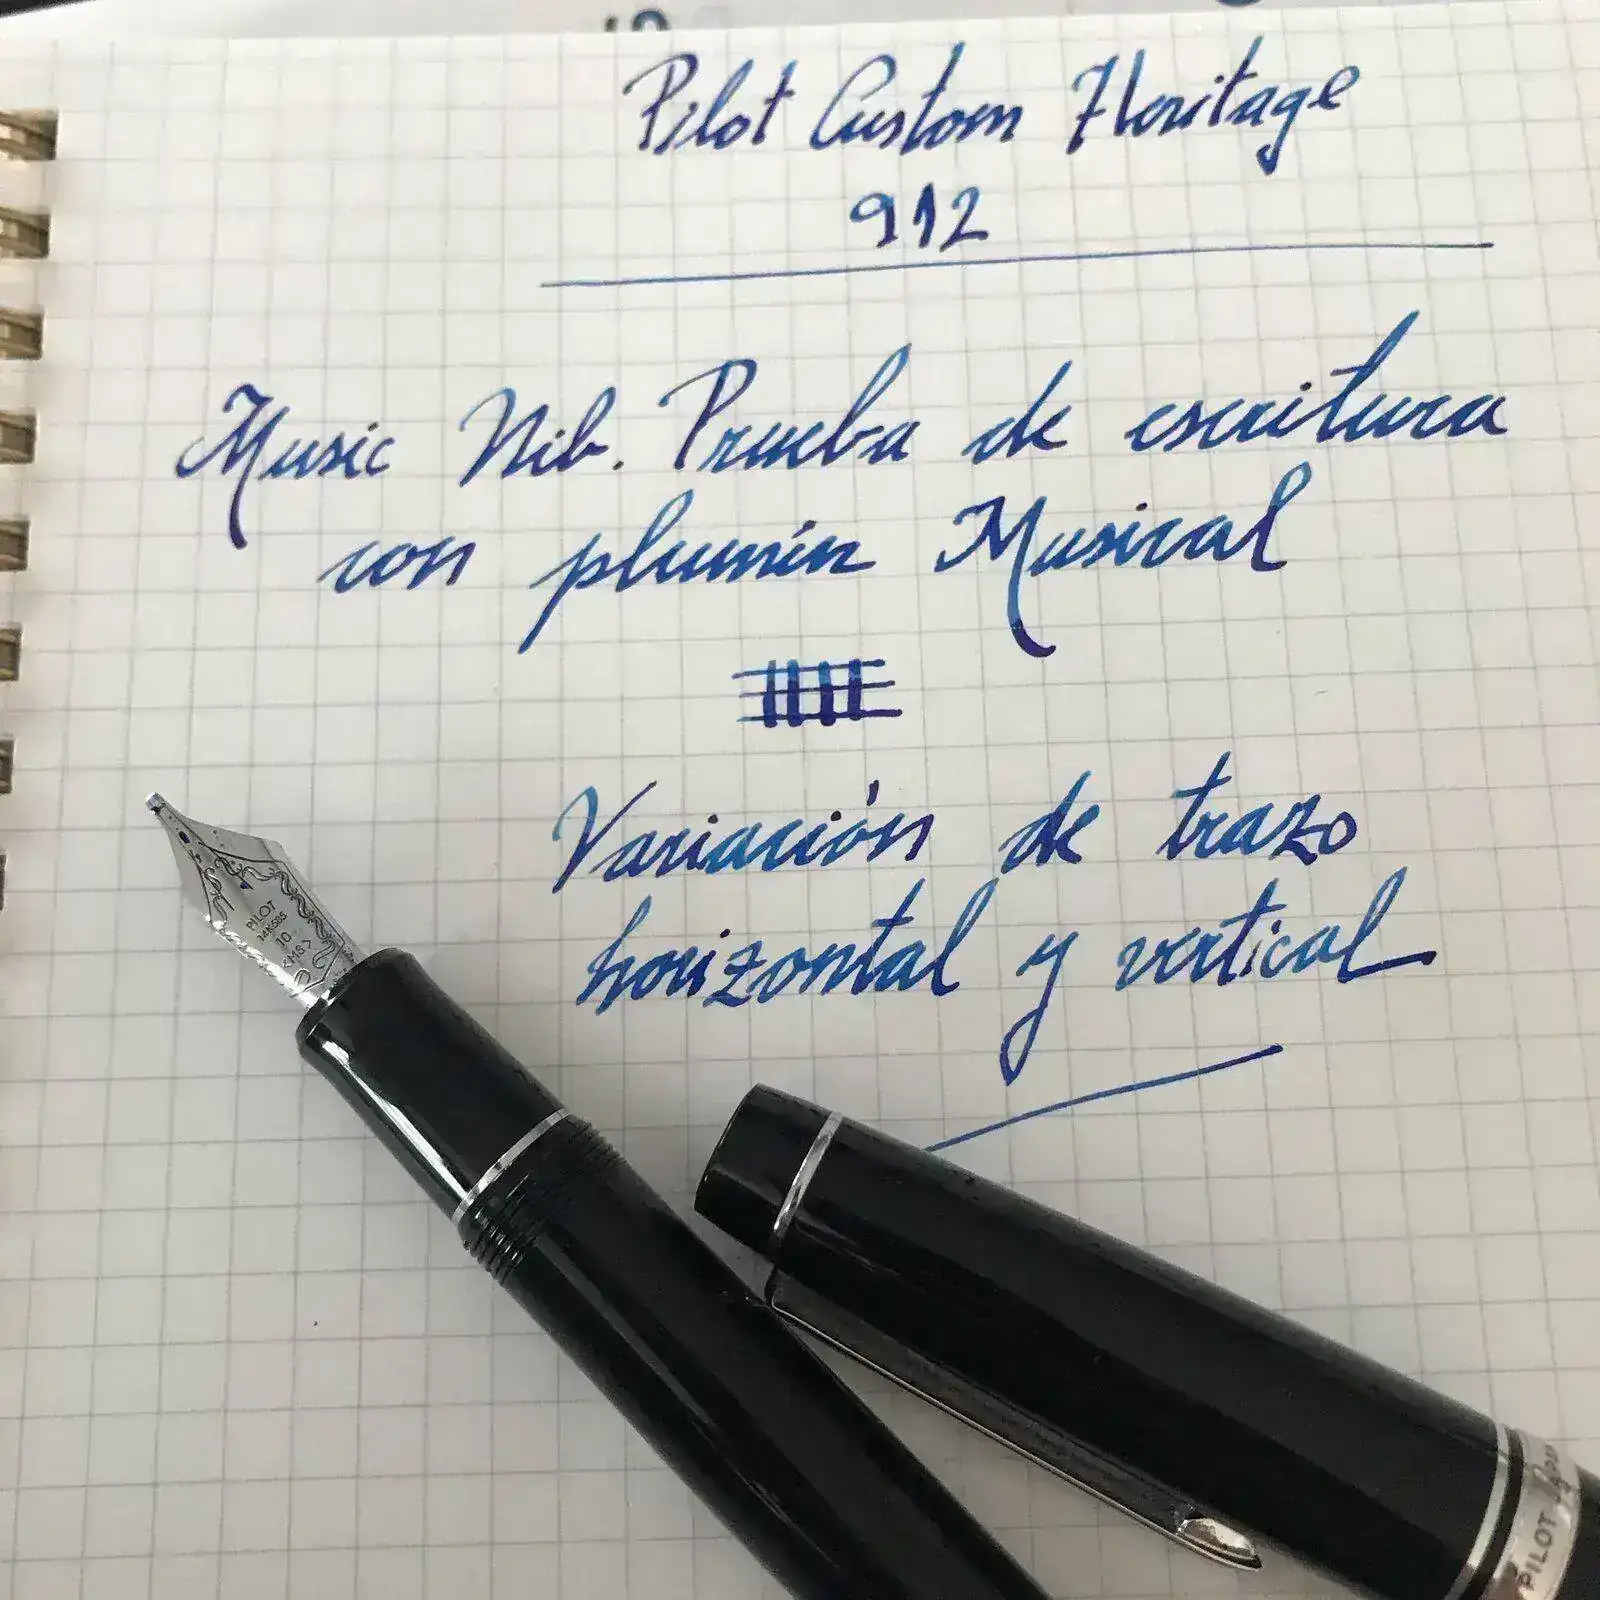 Pilot Custom Heritage
912
Music Nib. Prueba de escritura
con plumín Musical
Variación de trazo
horizontal y vertical
PILOT
14K585
10
<MS>
PILOT